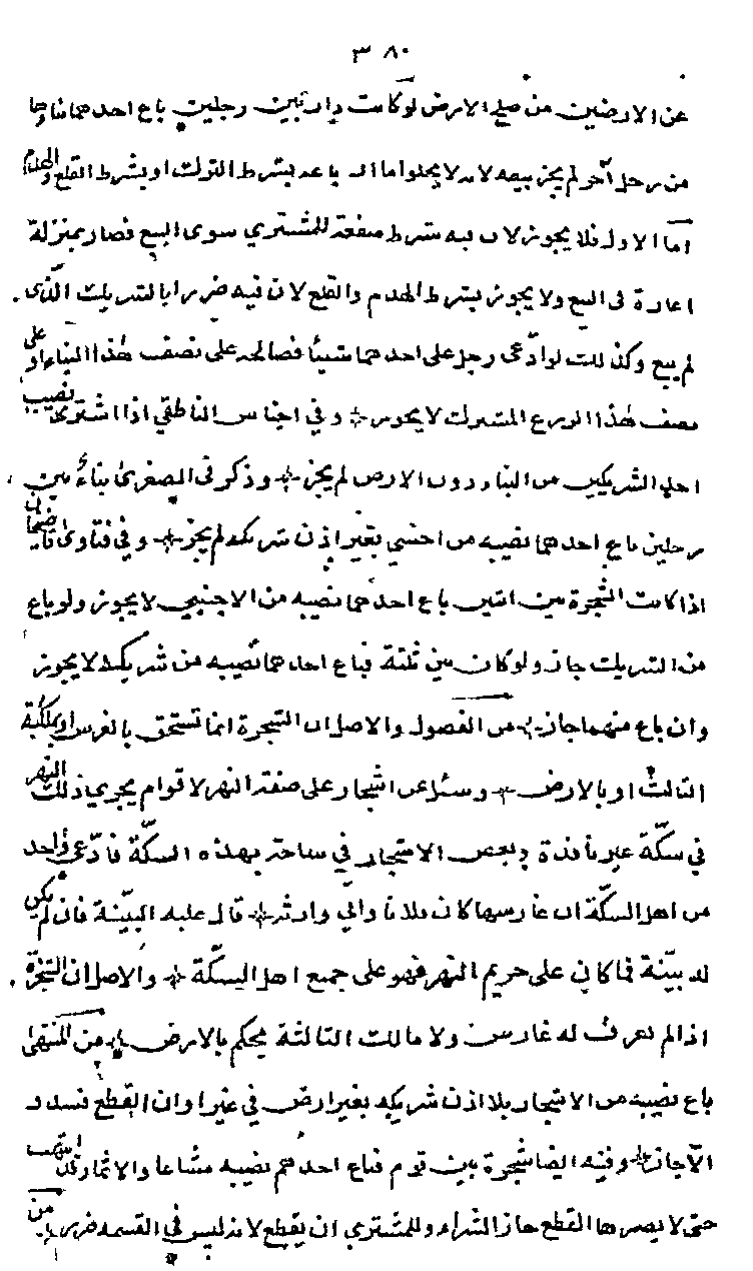 ٣٨٠
عن الارضين من صلح الارض لو كانت دار بين رجلين باع احدهما بناؤها
من رجل آخر لم يجز بيعه لانه لا يخلوا اما انه باعه بشرط الترك او بشرط القلع والهدم
اما الاول فلا يجوز لان فيه شرط منفعة للمشتري سوى البيع فصار بمنزلة
اعارة فى البيع ولا يجوز بشرط الهدم والقلع لان فيه ضررا بالشريك الّذى
لم يبع وكذلك لو ادّعى رجل على احدهما شيئا فصالحه على نصف هذا البناء او على
نصف هذا الزرع المشترك لا يجوز وفي اجناس الناطقي اذا اشترى نصيب
احد الشريكين من البناء دون الارض لم يجز وذكر فى الصغرى بناءٌ بين
رجلين باع احدهما نصيبه من اجنبي بغير اذن شريكه لم يجز وفي فتاوى قاضيخان
اذا كانت الشجرة بين اثنين باع احدهما نصيبه من الاجنبي لا يجوز ولو باع
من الشريك جاز ولو كان بين ثلثة فباع احدهما نصيبه من شريكه لا يجوز
وان باع منهما جاز من الفصول والاصل ان الشجرة انما تستحق بالغرس او بملكية
الثالث او بالارض وسئل عن اشجار على صفة النهر لاقوام يجري ذلك النهر
في سكّة غير نافذة وبعض الاشجار في ساحة بهذه السكّة فادّعى واحد
من اهل السكّة ان غارسها كان فلانا واني وارثه قال عليه البيّنة فان لم يكن
له بيّنة فما كان على حريم النهر فهو على جميع اهل السكّة والاصل ان الشجرة
اذا لم يعرف له غارس ولا مالك الثالثة يحكم بالارض من المنتقى
باع نصيبه من الاشجار بلا اذن شريكه بغير ارض في
الاجاز وفيه ايضا شجرة بين قوم فباع احدهم نصيبه مشاعا والاثمار قد انتهت
حتى لا يضرها القطع جاز الشراء وللمشتري ان يقطع لانه ليس في القسمة ضرر من